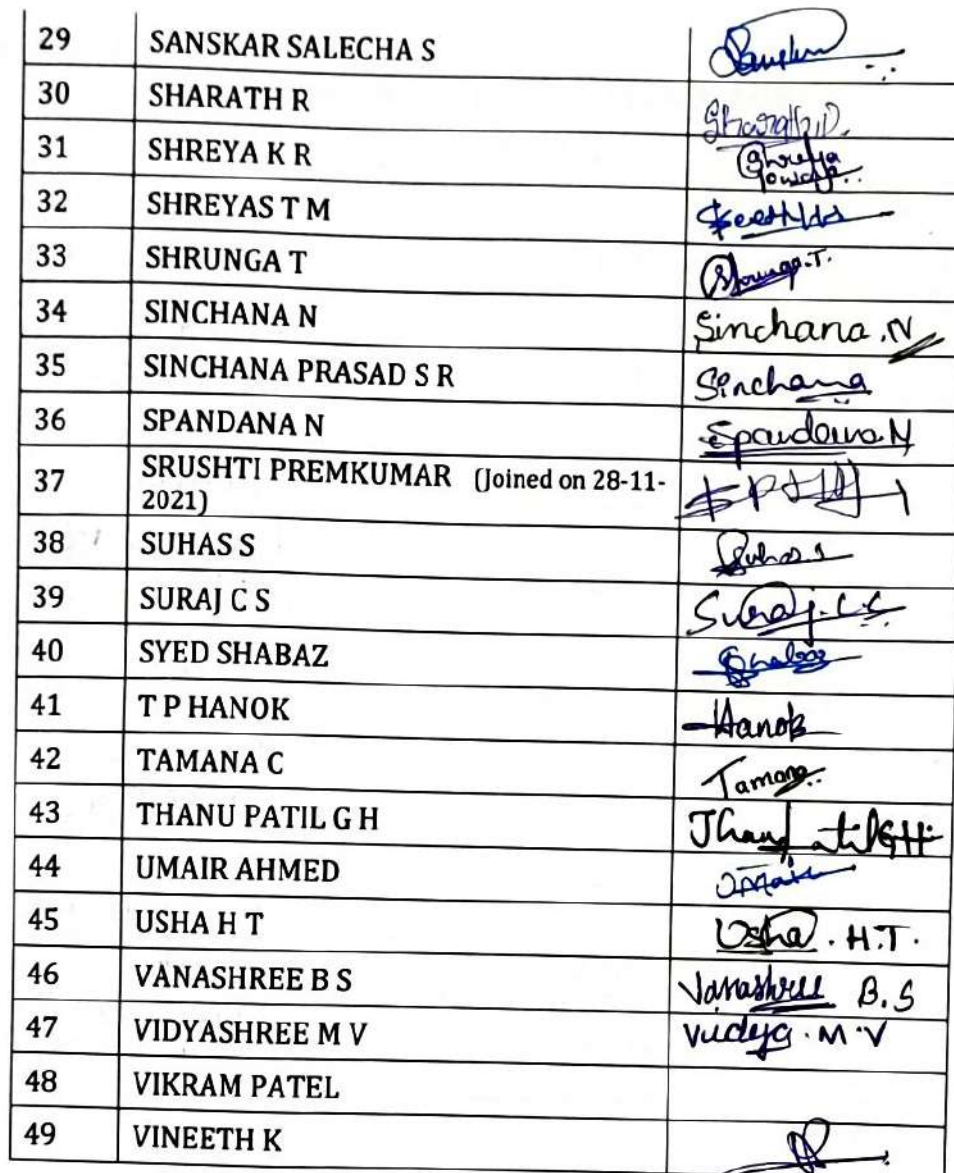 29 SANSKAR SALECHA S
30 SHARATH R
31 SHREYA K R Shreya
32 SHREYAS T M
33 SHRUNGA T Shrunga.T.
34 SINCHANA N Sinchana.N
35 SINCHANA PRASAD S R Sinchana
36 SPANDANA N Spandana N
37 SRUSHTI PREMKUMAR (Joined on 28-11-
2021)
38 SUHAS S Suhas S
39 SURAJ C S Suraj.C.S
40 SYED SHABAZ Shabaz
41 T P HANOK Hanok
42 TAMANA C Tamana
43 THANU PATIL G H
44 UMAIR AHMED
45 USHA H T Usha. H.T.
46 VANASHREE B S Vanashree B.S
47 VIDYASHREE M V Vidya.M.V
48 VIKRAM PATEL
49 VINEETH K